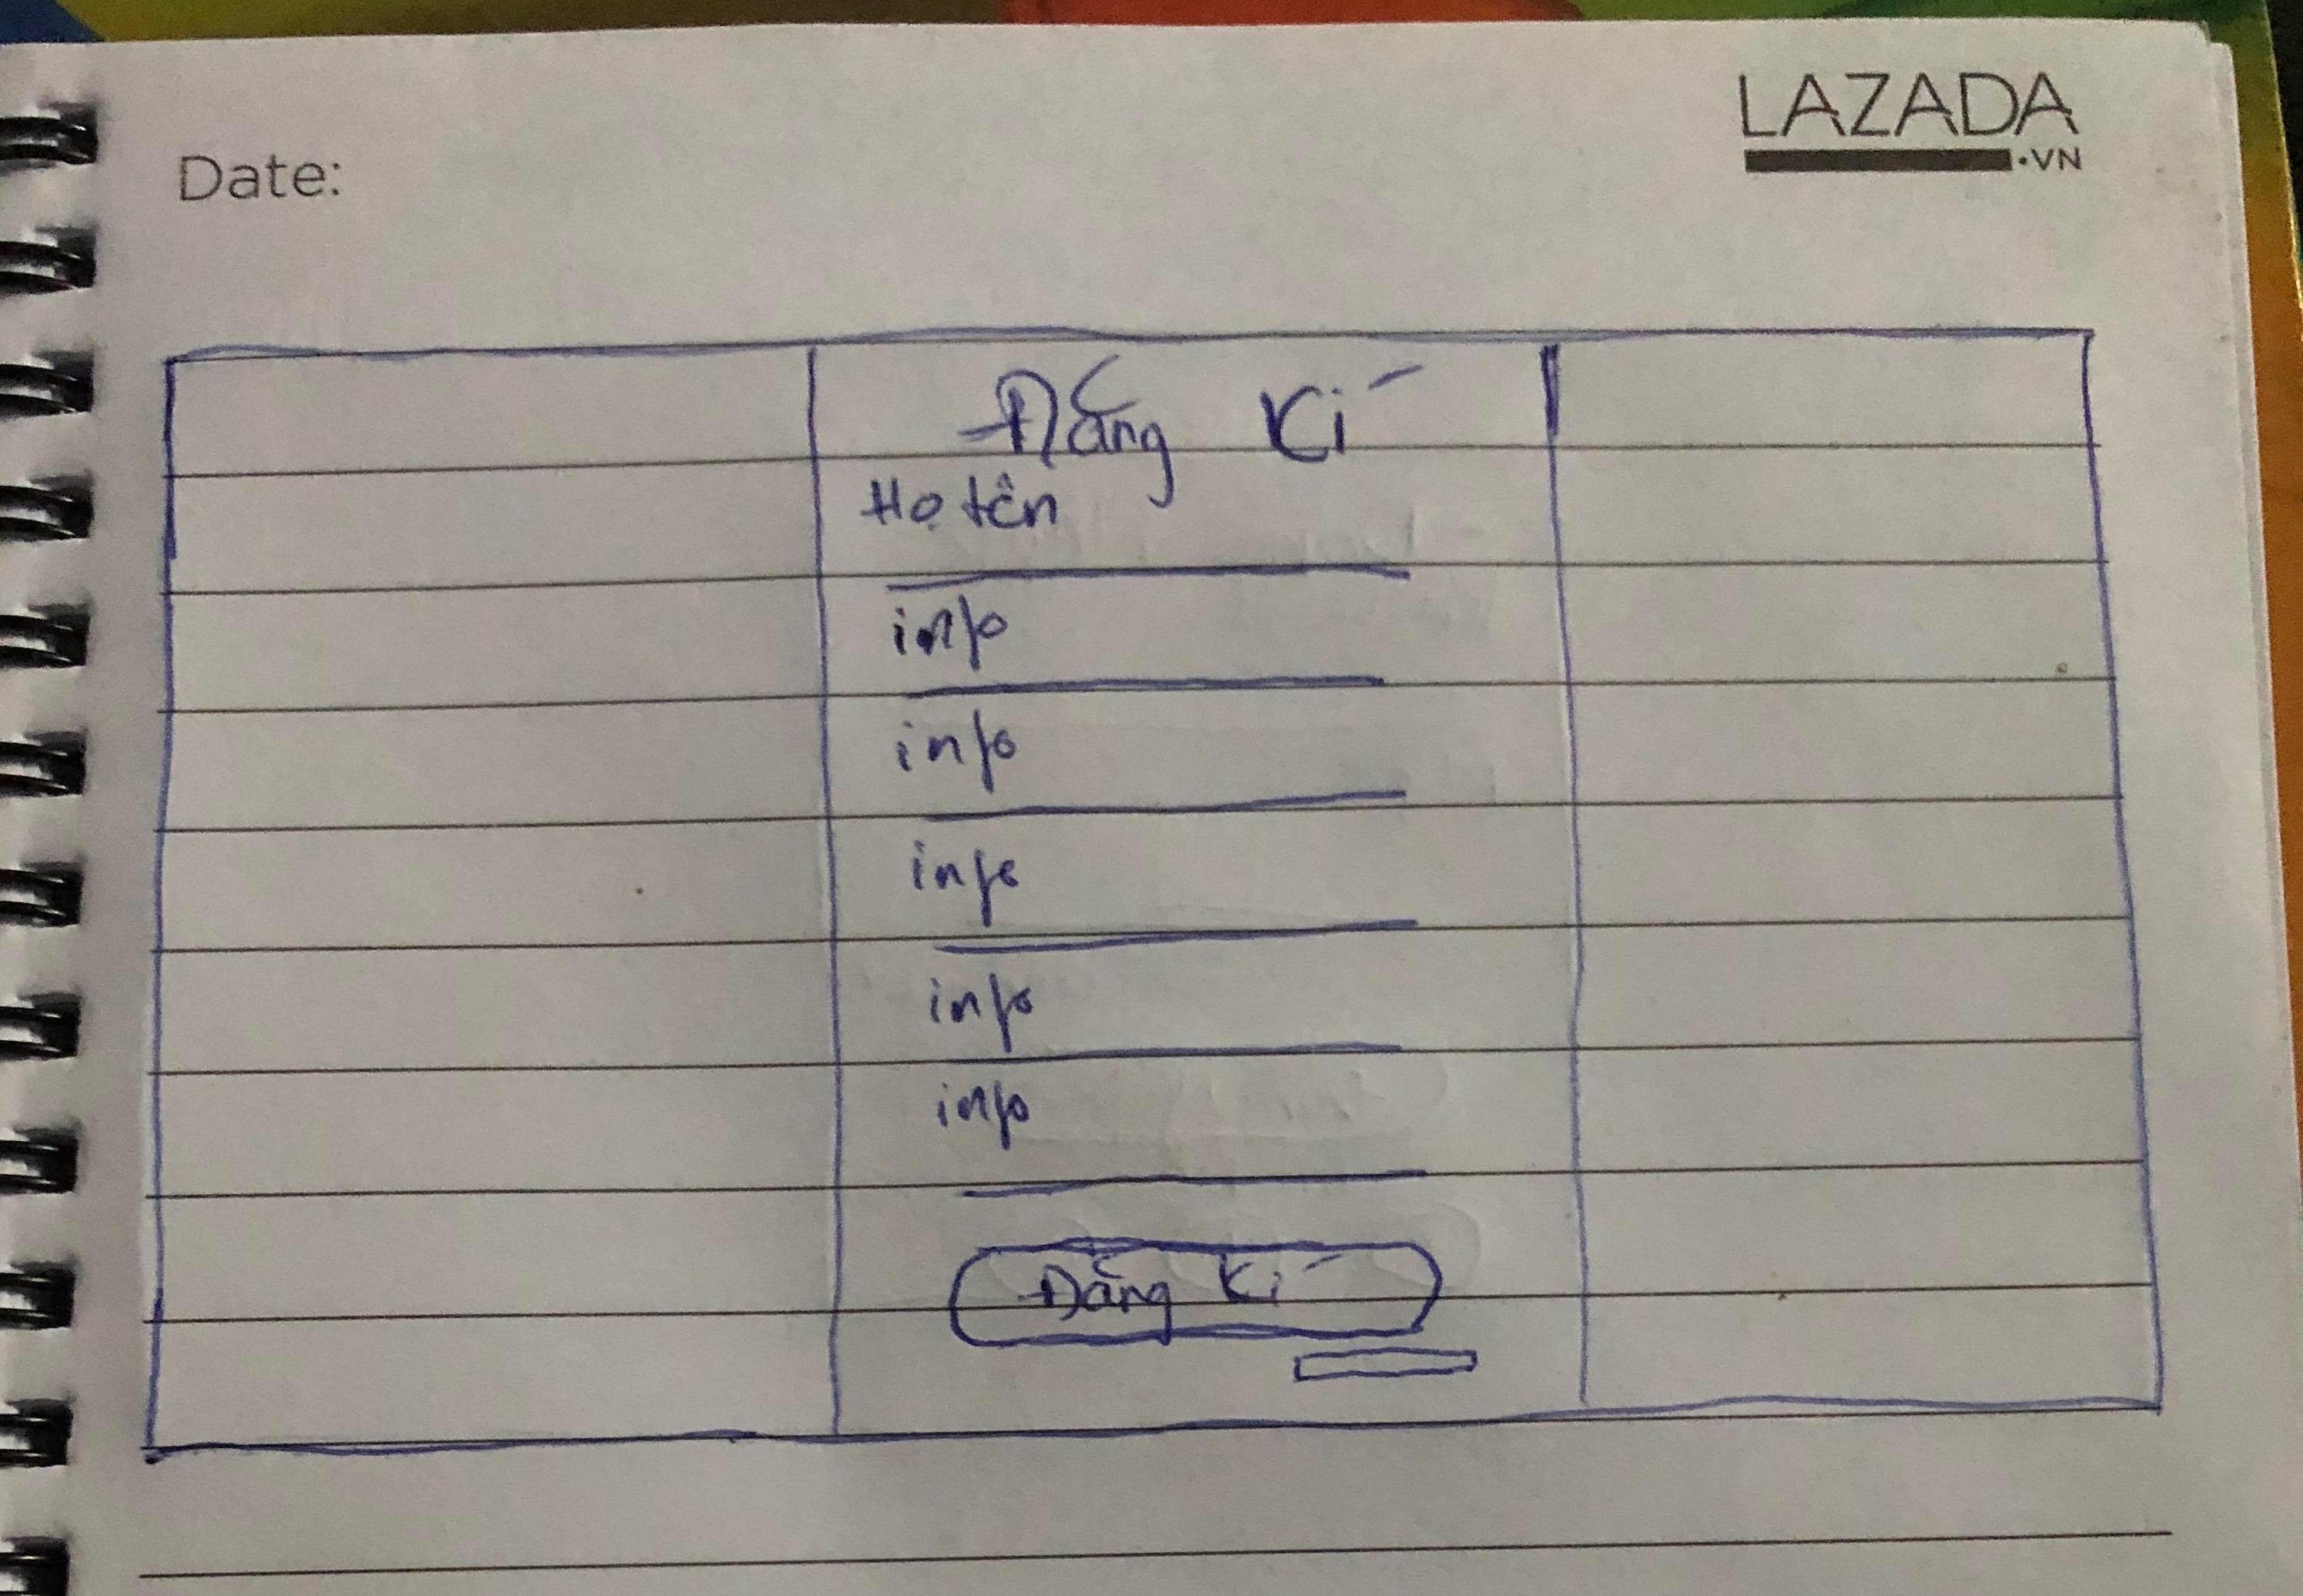 LAZADA
.VN
Date:
Đăng Kí
Họ tên
info
info
info
info
info
Đăng Kí